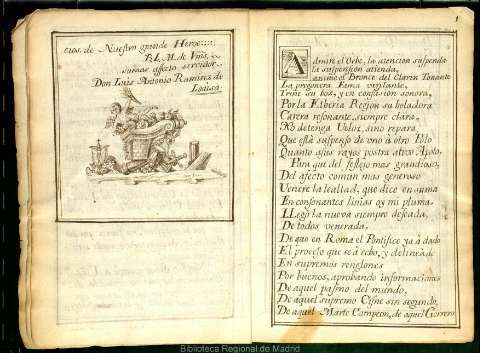 cios de Nuestro grande Heroe
B. L. M. de Vms,
su mas affecto servidor
Don Luis Antonio Ramirez de
Loaisa.
1
Admire el Orbe, la atencion suspenda
la suspension atienda,
anime el Bronce del Clarin Tonante
La pregonera Fama vigilante,
Trine su bos, y en confusion sonora,
Por la Elberia Region su boladora
Carera resonante, siempre clara,
No detenga Veloz, sino repara,
Que està suspenso de uno à otro Polo
Quanto à sus rayos postra altivo Apolo.
Para que del festejo mas grandioso,
Del afecto comun mas generoso
Venere la lealtad, que dice en suma
En consonantes linias oy mi pluma.
LLegò la nueva siempre deseada,
De todos venerada,
De que en Roma el Pontifice ya à dado
El proceso que se à echo, y delineàdo
En supremos renglones
Por buenos, aprobando informaciones
De aquel pasmo del mundo,
De aquel supremo Cisne sin segundo,
De aquel Marte Campeon, de aquel Gerrero
Biblioteca Regional de Madrid